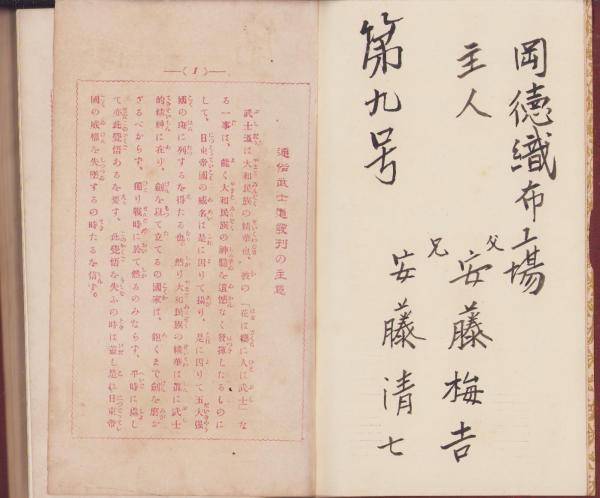 岡德織布工場
主人
父
安藤梅吉
兄
安藤清七
第九号
1
通俗武士道發刊の主意
武士道は大和民族の精華也、彼の「花は櫻に人は武士」な
る一事は、能く大和民族の神髓を遺憾なく發揮したるものに
して、日東帝國の威名は是に因りて揚り、是に因りて五大强
國の班に列するを得たる也。然り大和民族の精華は實に武士
的精神に在り、劍を以て立てるの國家は、飽くまで劍を磨か
ざるべからず。獨り戰時に於て然るのみならず、平時に處し
て亦此覺悟あるを要す、此覺悟を失ふの時は蓋し是れ日東帝
國の威權を失墜するの時たるを信ず。